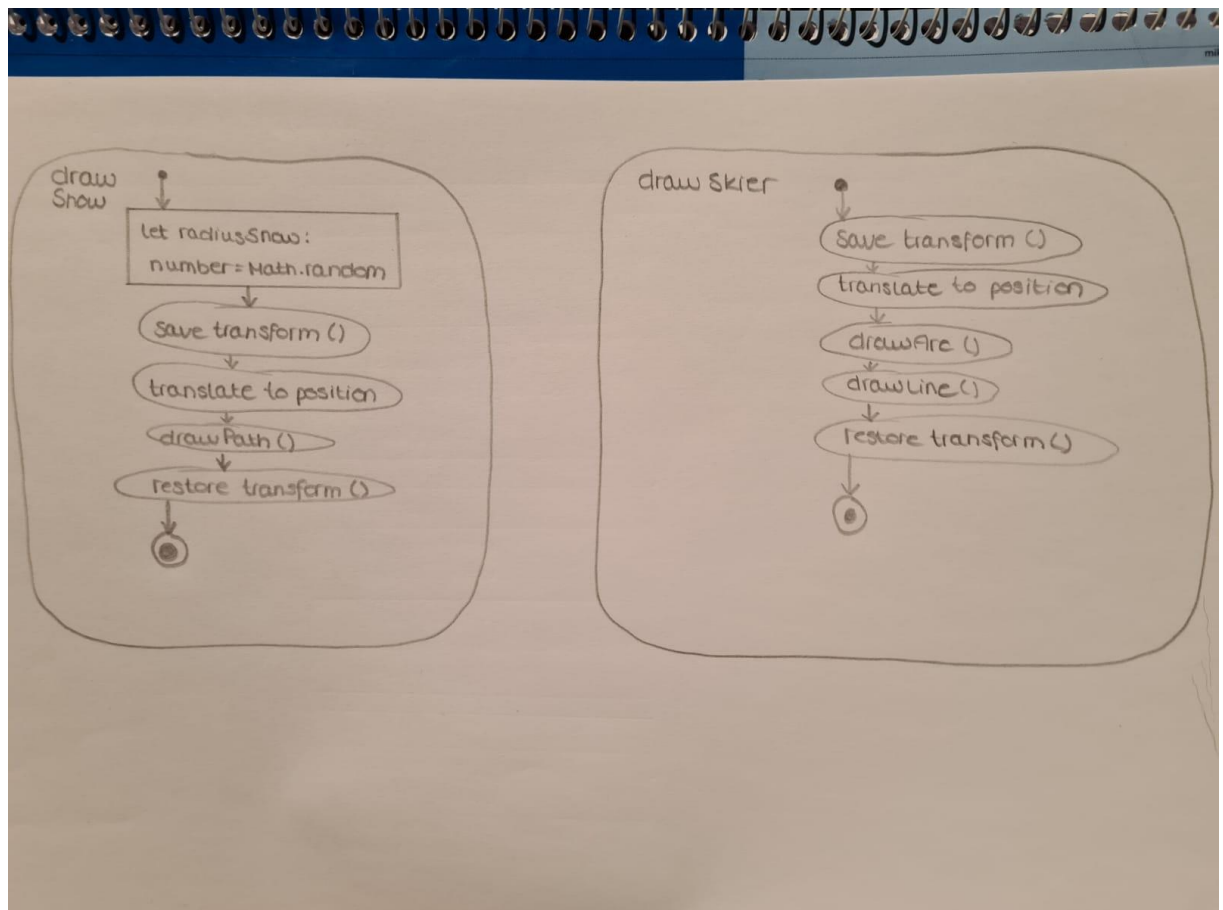 draw
Snow
let radiusSnow:
number = Math.random
save transform ()
translate to position
drawPath ()
restore transform ()
draw Skier
save transform ()
translate to position
drawArc ()
drawLine ()
restore transform ()